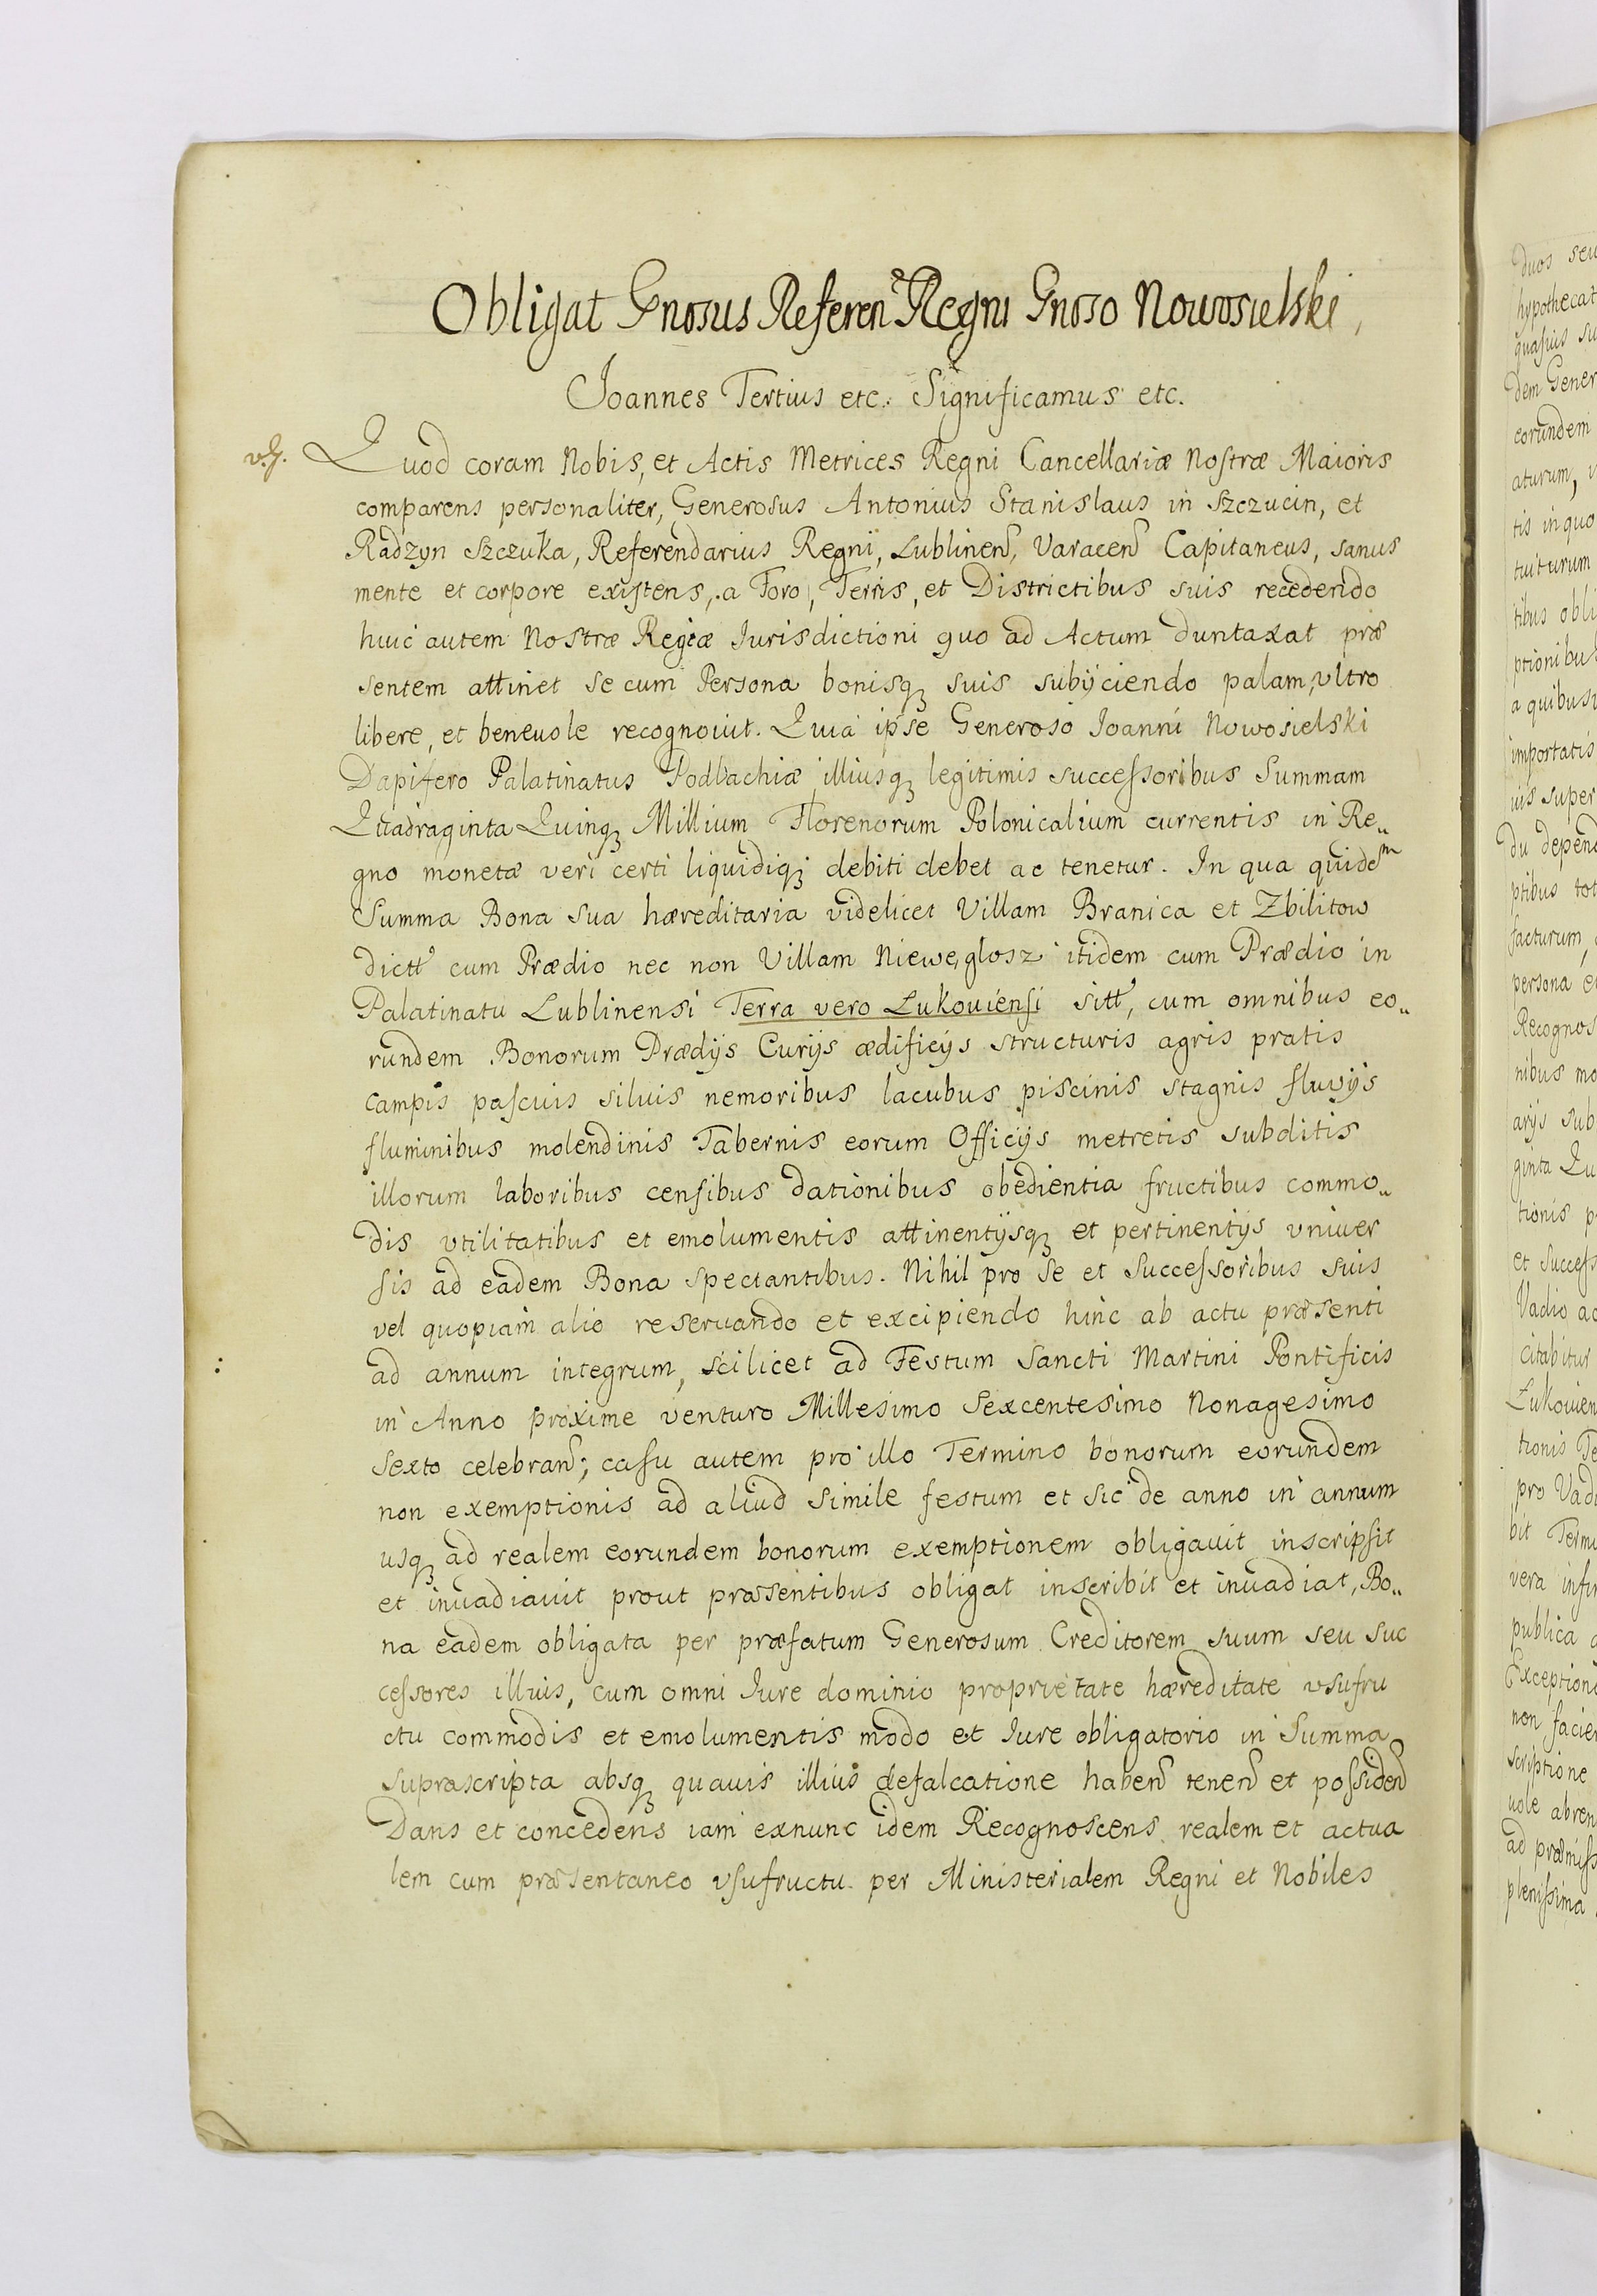 Obligat Gnosus Referen Regni Gnoso Nowosielski,
Joannes Tertius etc. Significamus etc.
Quod coram Nobis, et Actis Metrices Regni Cancellariæ Nostræ Maioris
comparens personaliter, Generosus Antonius Stanislaus in Szczucin, et
Radzyn Szczuka, Referendarius Regni, Lublinen, Varacen Capitaneus, sanus
mente et corpore existens, a Foro, Terris, et Districtibus suis recedendo
huic autem Nostræ Regiæ Iurisdictioni quo ad Actum duntaxat præ
sentem attinet se cum Persona bonisq suis subijciendo palam, ultro
libere, et beneuole recognouit. Quia ipse Generoso Joanni Nowosielski
Dapifero Palatinatus Podlachiæ illiusq legitimis successoribus Summam
Quadraginta Quinq Millium Florenorum Polonicalium currentis in Re„
gno monetæ veri certi liquidiq debiti debet ac tenetur. In qua quidem
Summa Bona sua hæreditaria videlicet Villam Branica et Zbilitow
dictt cum Prædio nec non Villam Nieweglosz itidem cum Prædio in
Palatinatu Lublinensi Terra vero Lukouiensi sitt, cum omnibus eo„
rundem Bonorum Prædijs Curijs ædificijs structuris agris pratis
campis pascuis siluis nemoribus lacubus piscinis stagnis fluvijs
fluminibus molendinis Tabernis eorum Officijs metretis subditis
illorum laboribus censibus dationibus obedientia fructibus commo„
dis vtilitatibus et emolumentis attinentijsq et pertinentijs vniuer
sis ad eadem Bona spectantibus. Nihil pro se et Successoribus suis
vel quopiam alio reseruando et excipiendo hinc ab actu præsenti
ad annum integrum, scilicet ad Festum Sancti Martini Pontificis
in Anno proxime venturo Millesimo Sexcentesimo Nonagesimo
Sexto celebran; casu autem pro illo Termino bonorum eorundem
non exemptionis ad aliud simile festum et sic de anno in annum
usq ad realem eorundem bonorum exemptionem obligauit inscripsit
et inuadiauit prout præsentibus obligat inscribit et inuadiat, Bo„
na eadem obligata per præfatum Generosum Creditorem suum seu suc
cessores illius, cum omni Iure dominio proprietate hæreditate vsufru
ctu commodis et emolumentis modo et Iure obligatorio in Summa
suprascripta absq quauis illius defalcatione haben tenen et possiden
Dans et concedens iam exnunc idem Recognoscens realem et actua
lem cum præsentaneo vsufructu per Ministerialem Regni et Nobiles
duos seu
hypothecat
quasuis su
dem Gener
eorundem
aturum,
tis in quo
tuiturum
tibus obli
ptionibus
a quibus
importatis
uis super
du depend
ptibus tot
facturum,
persona e
Recognos
nibus mo
arijs sub
ginta Qu
tionis p
et success
Vadio ac
citabitur
Lukouien
tionis Te
pro Vadi
bit Termi
vera infir
publica
Exceptioni
non facien
scriptione
uole abren
ad præmiss
plenissima